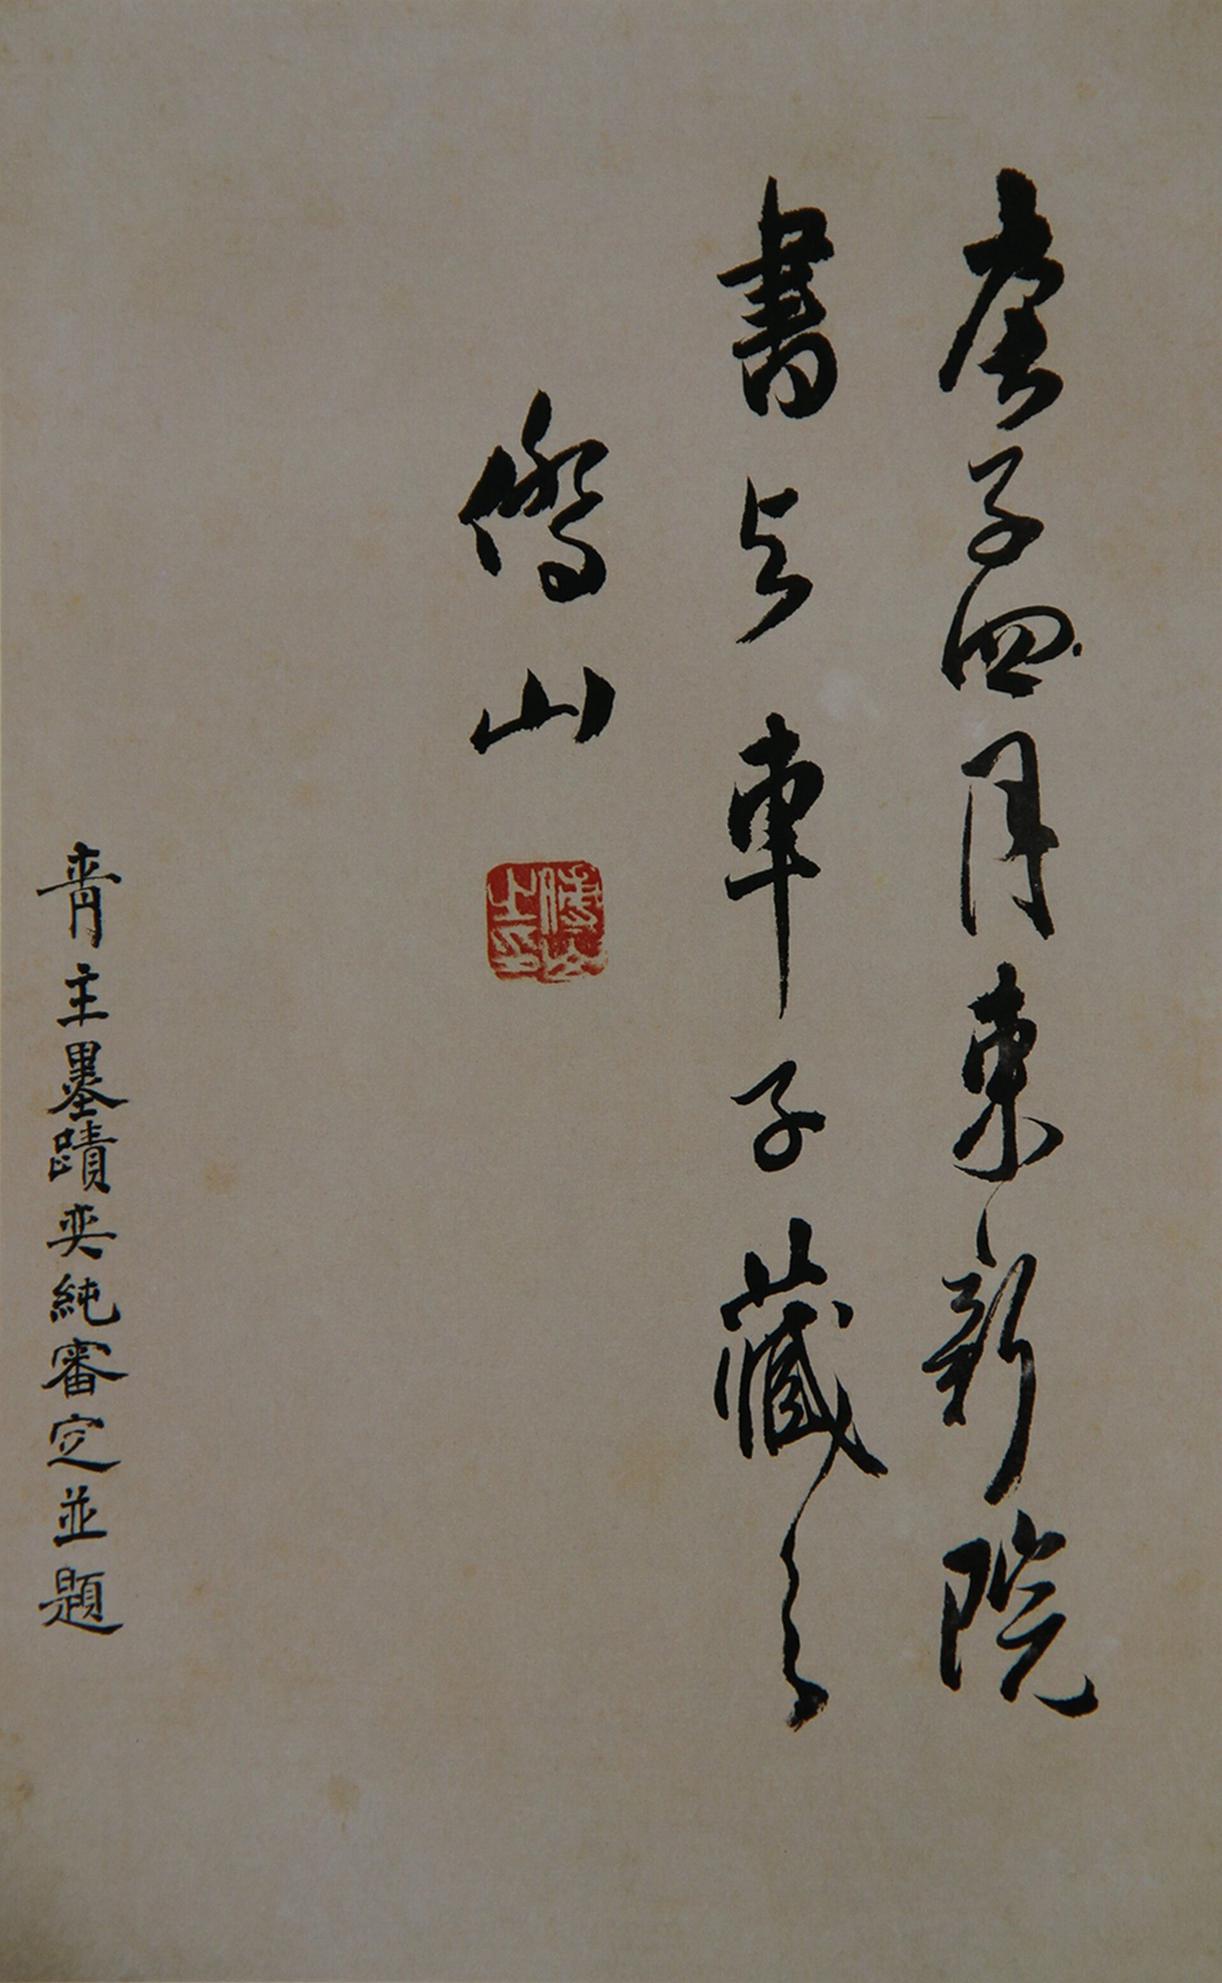 庚子四月東新院
書与車子藏之
傅山
傅山之印
青主墨蹟奕純審定並題